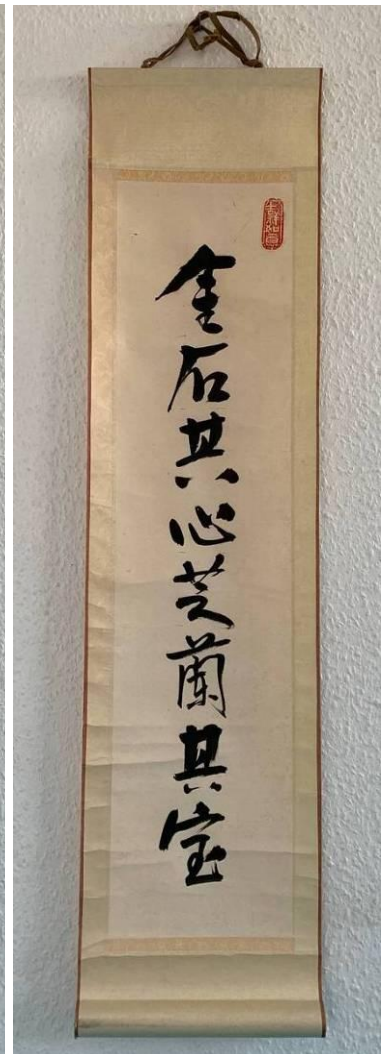 金石其心芝蘭其室